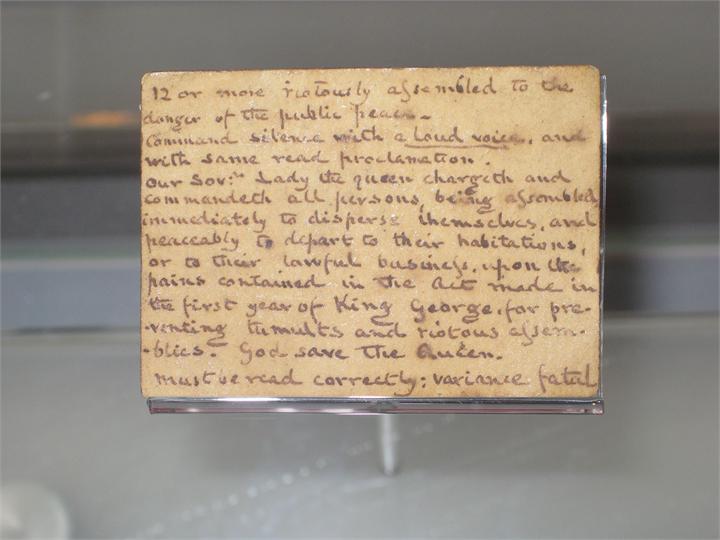 12 or more riotously assembled to the
danger of the public peace.
Command silence with a loud voice, and
with same read proclamation.
Our Sov:ⁿ Lady the queen chargeth and
commandeth all persons, being assembled,
immediately to disperse themselves, and
peaceably to depart to their habitations,
or to their lawful business, upon the
pains contained in the Act made in
the first year of King George, for pre-
-venting tumults and riotous assem-
-blies. God save The Queen.
must be read correctly; variance fatal